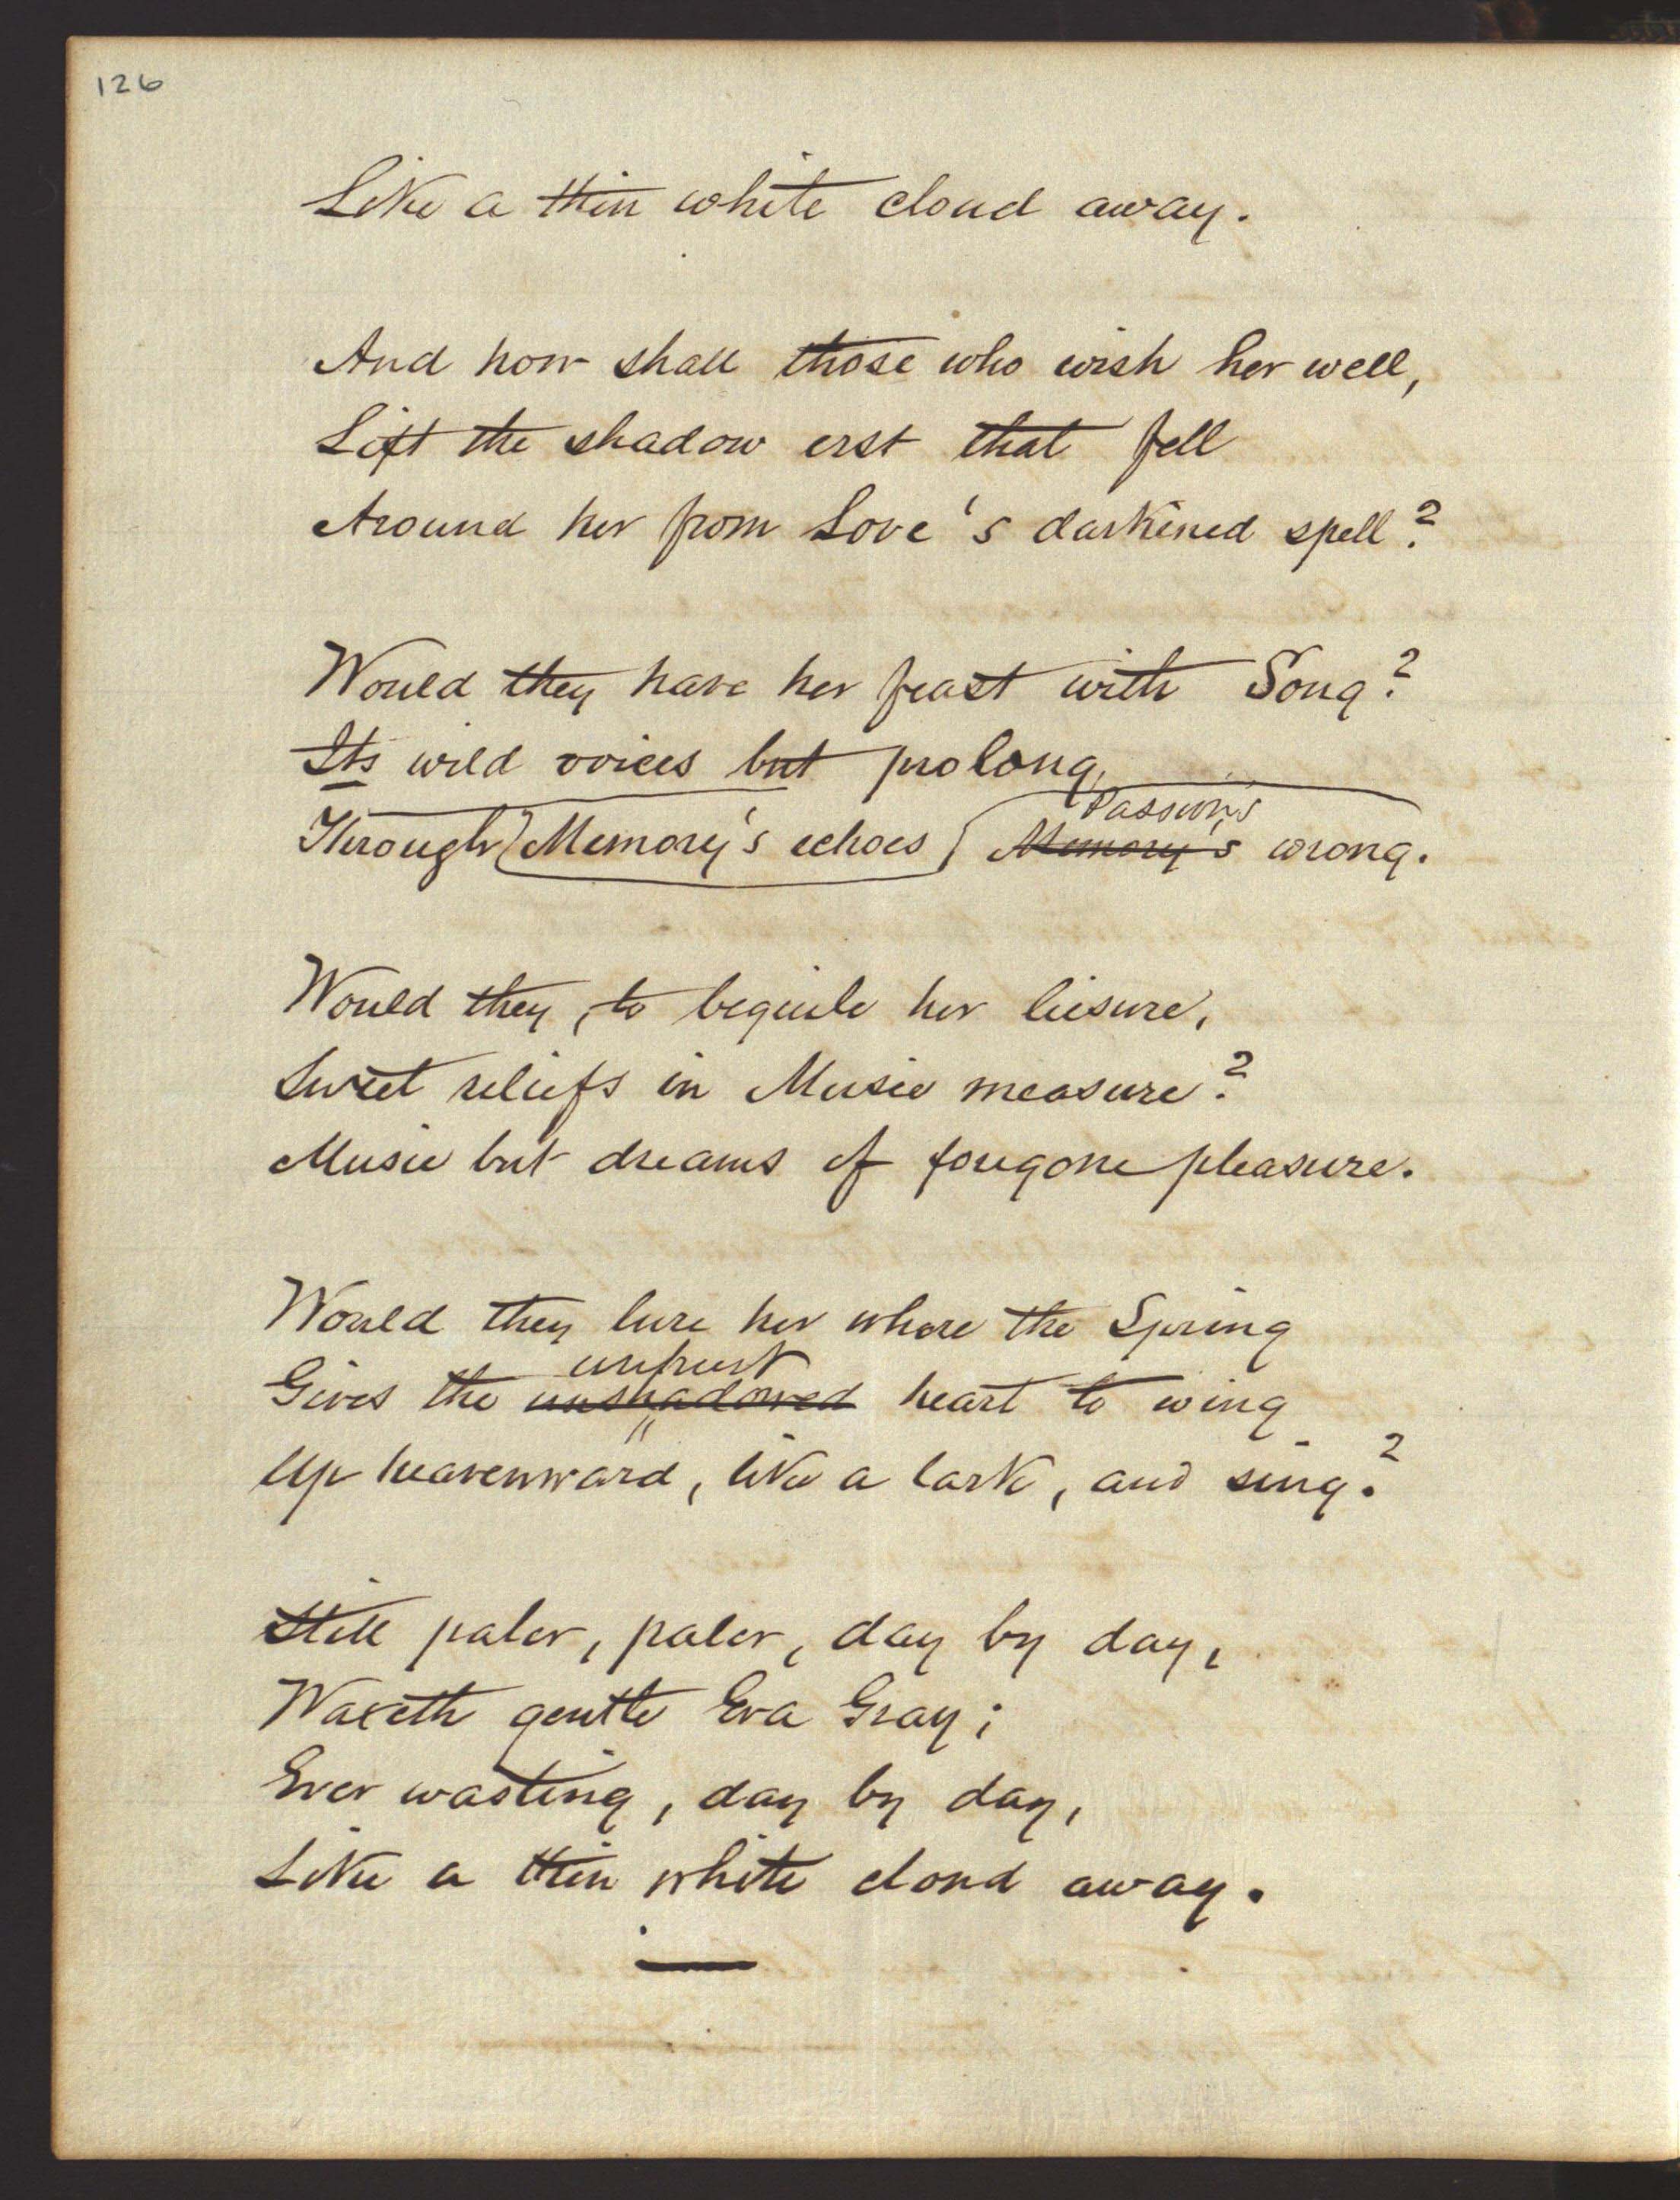 126
Like a thin white cloud away.
And how shall those who wish her well,
Lift the shadow erst that fell
Around her from Love's darkened spell?
Would they have her feast with Song?
Its wild voices but prolong,
Passion's
Through Memory's echoes Memory's wrong.
Would they, to beguile her liesure,
Sweet reliefs in Music measure?
Music but dreams of foregone pleasure.
Would they lure her where the Spring
Gives the unshadowed heart to wing
Up heavenward, like a lark, and sing?
Still paler, paler, day by day,
Waxeth gentle Eva Gray;
Ever wasting, day by day,
Like a thin white cloud away.